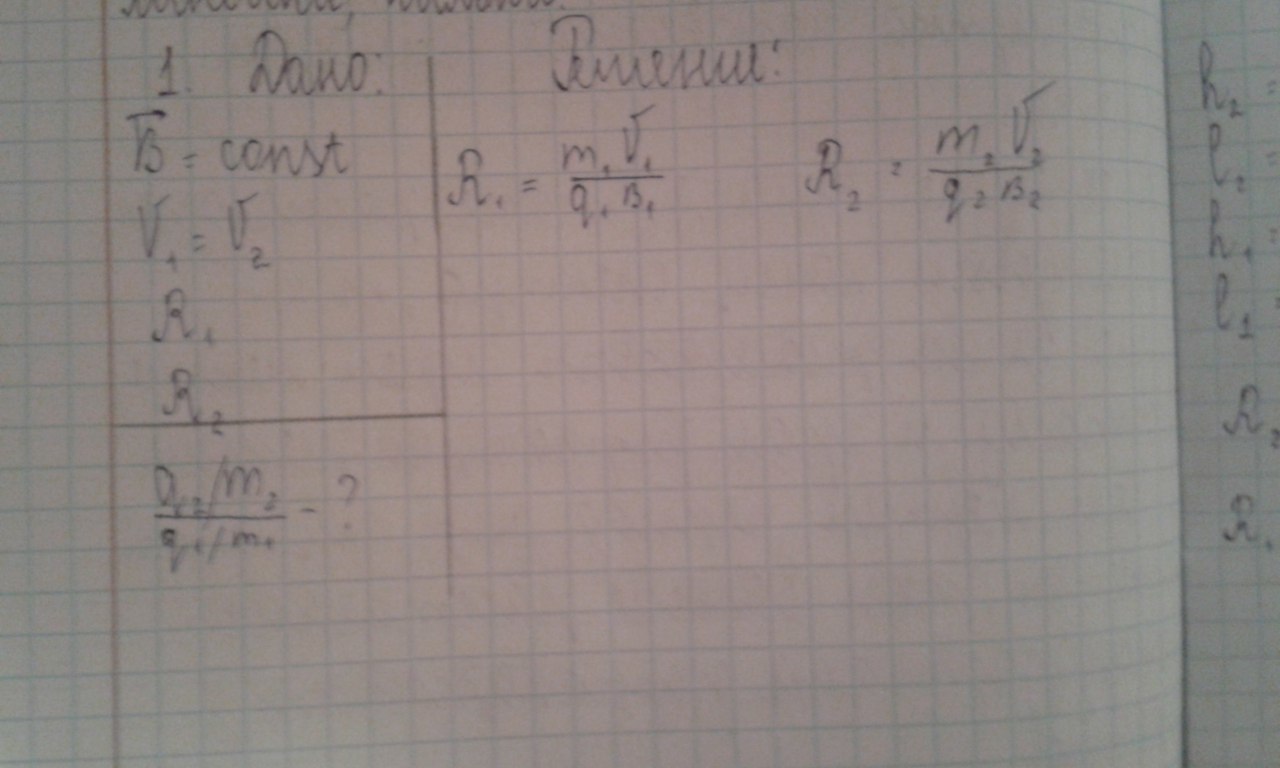 1. Дано:
B = const
V₁ = V₂
R₁
R₂
q₂/m₂
q₁/m₁ - ?
Решение:
R₁ = m₁ V₁
q₁ B₁
R₂ = m₂ V₂
q₂ B₂
h₂ =
l₂ =
h₁ =
l₁
R₂
R₁